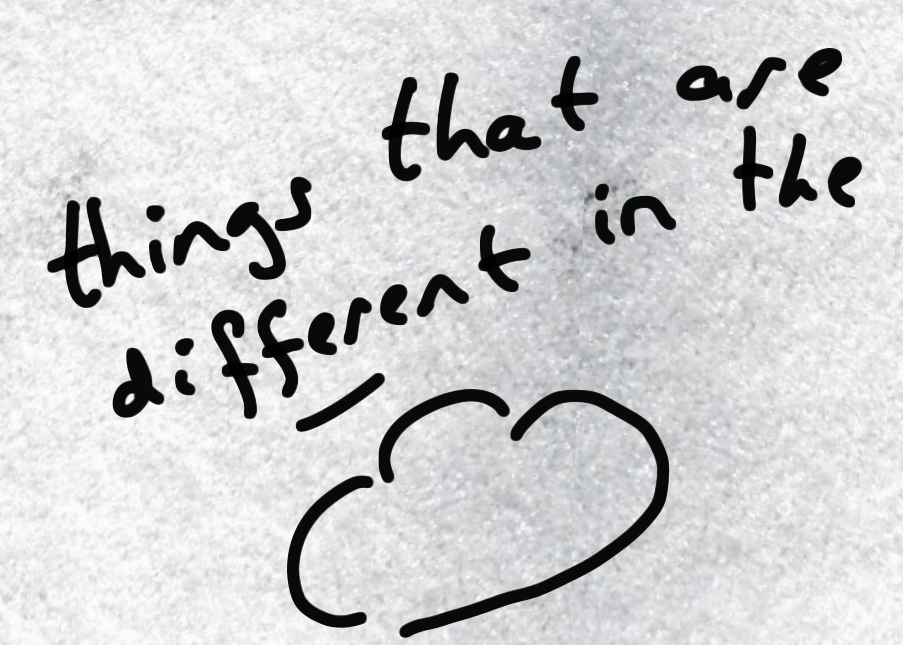 things that are
different in the